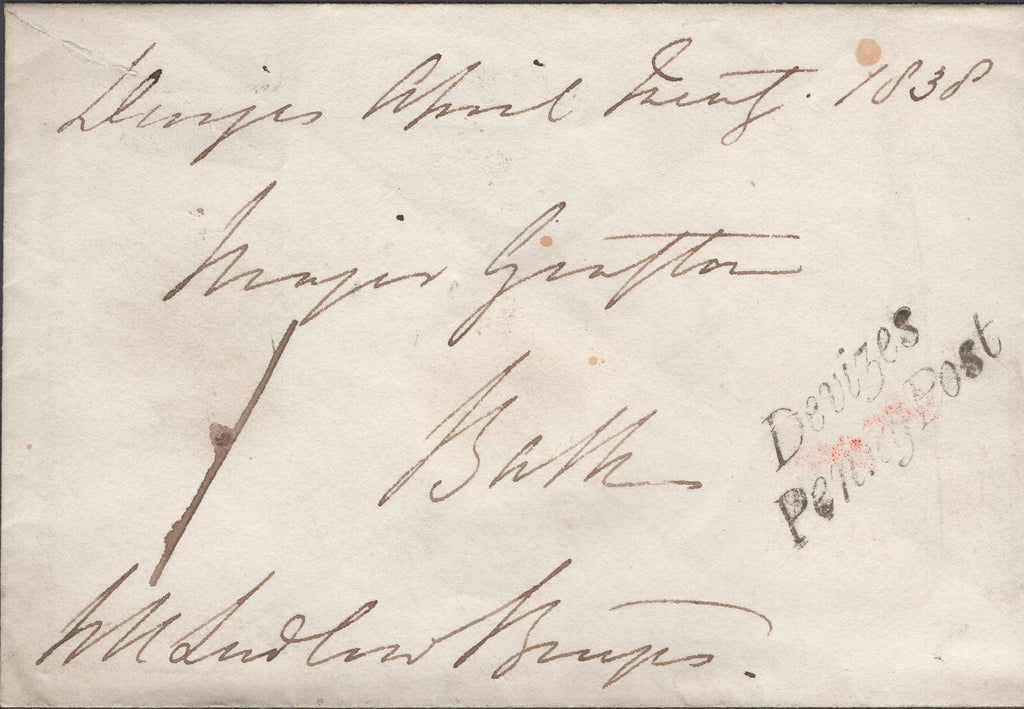 Devizes April Twenty. 1838
Major Grafton
Bath
Devizes
Penny Post
WH Ludlow Bruges.